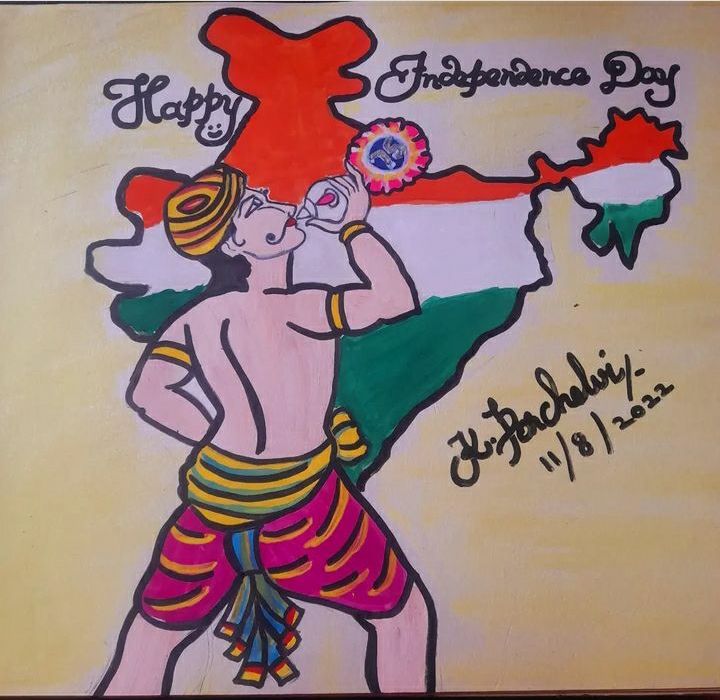 Happy Independence Day
75
K. Porchelvi/-
11/8/2022